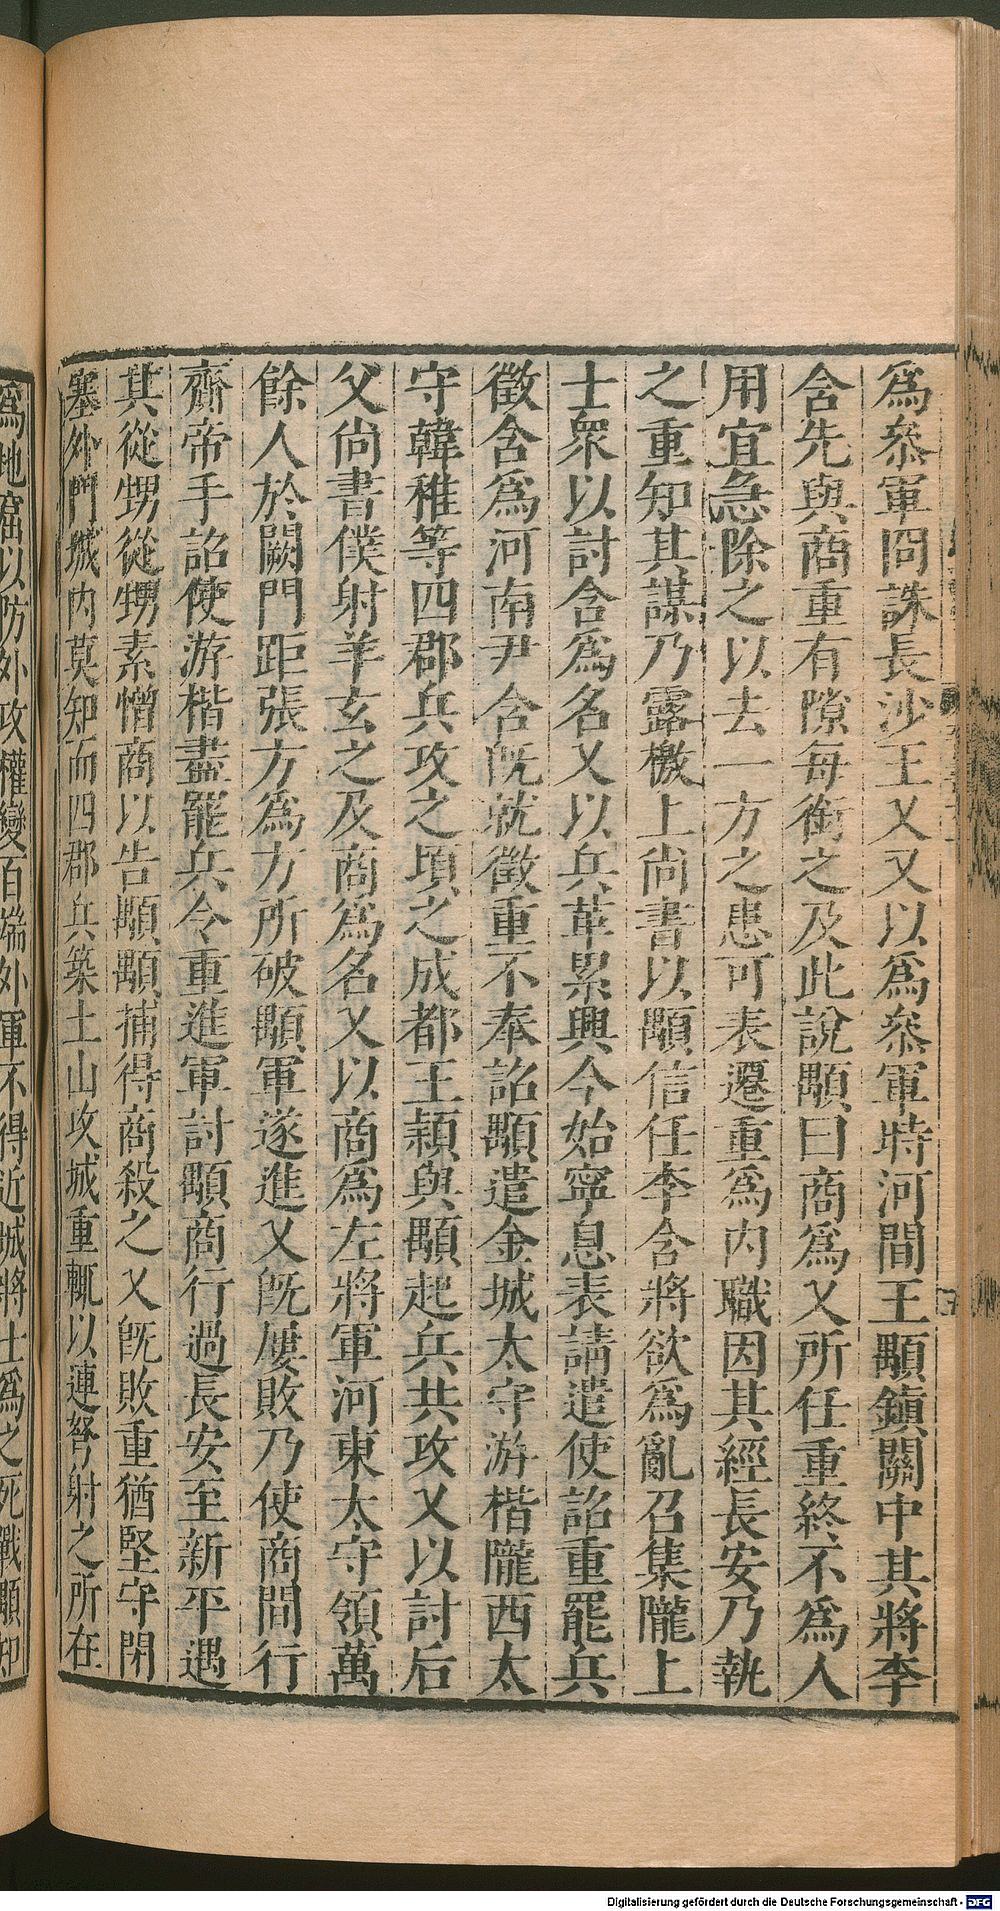 爲叅軍冏誅長沙王乂又以爲叅軍時河間王顒鎮關中其將李
含先與商重有隙每銜之及此說顒曰商爲乂所任重終不爲人
用宜急除之以去一方之患可表遷重爲內職因其經長安乃執
之重知其謀乃露檄上尚書以顒信任李含將欲爲亂召集隴上
士衆以討含爲名乂以兵革累興今始寧息表請遣使詔重罷兵
徵含爲河南尹含旣就徵重不奉詔顒遣金城太守游楷隴西太
守韓稚等四郡兵攻之頃之成都王穎與顒起兵共攻乂以討后
父尚書僕射羊玄之及商爲名乂以商爲左將軍河東太守領萬
餘人於闕門距張方爲方所破顒軍遂進乂旣屢敗乃使商間行
齎帝手詔使游楷盡罷兵令重進軍討顒商行過長安至新平遇
其從甥從甥素憎商以告顒顒捕得商殺之乂旣敗重猶堅守閉
塞外門城內莫知而四郡兵築土山攻城重輒以連弩射之所在
爲地窟以防外攻權變百端外軍不得近城將士爲之死戰顒知
Digitalisierung gefördert durch die Deutsche Forschungsgemeinschaft - DFG